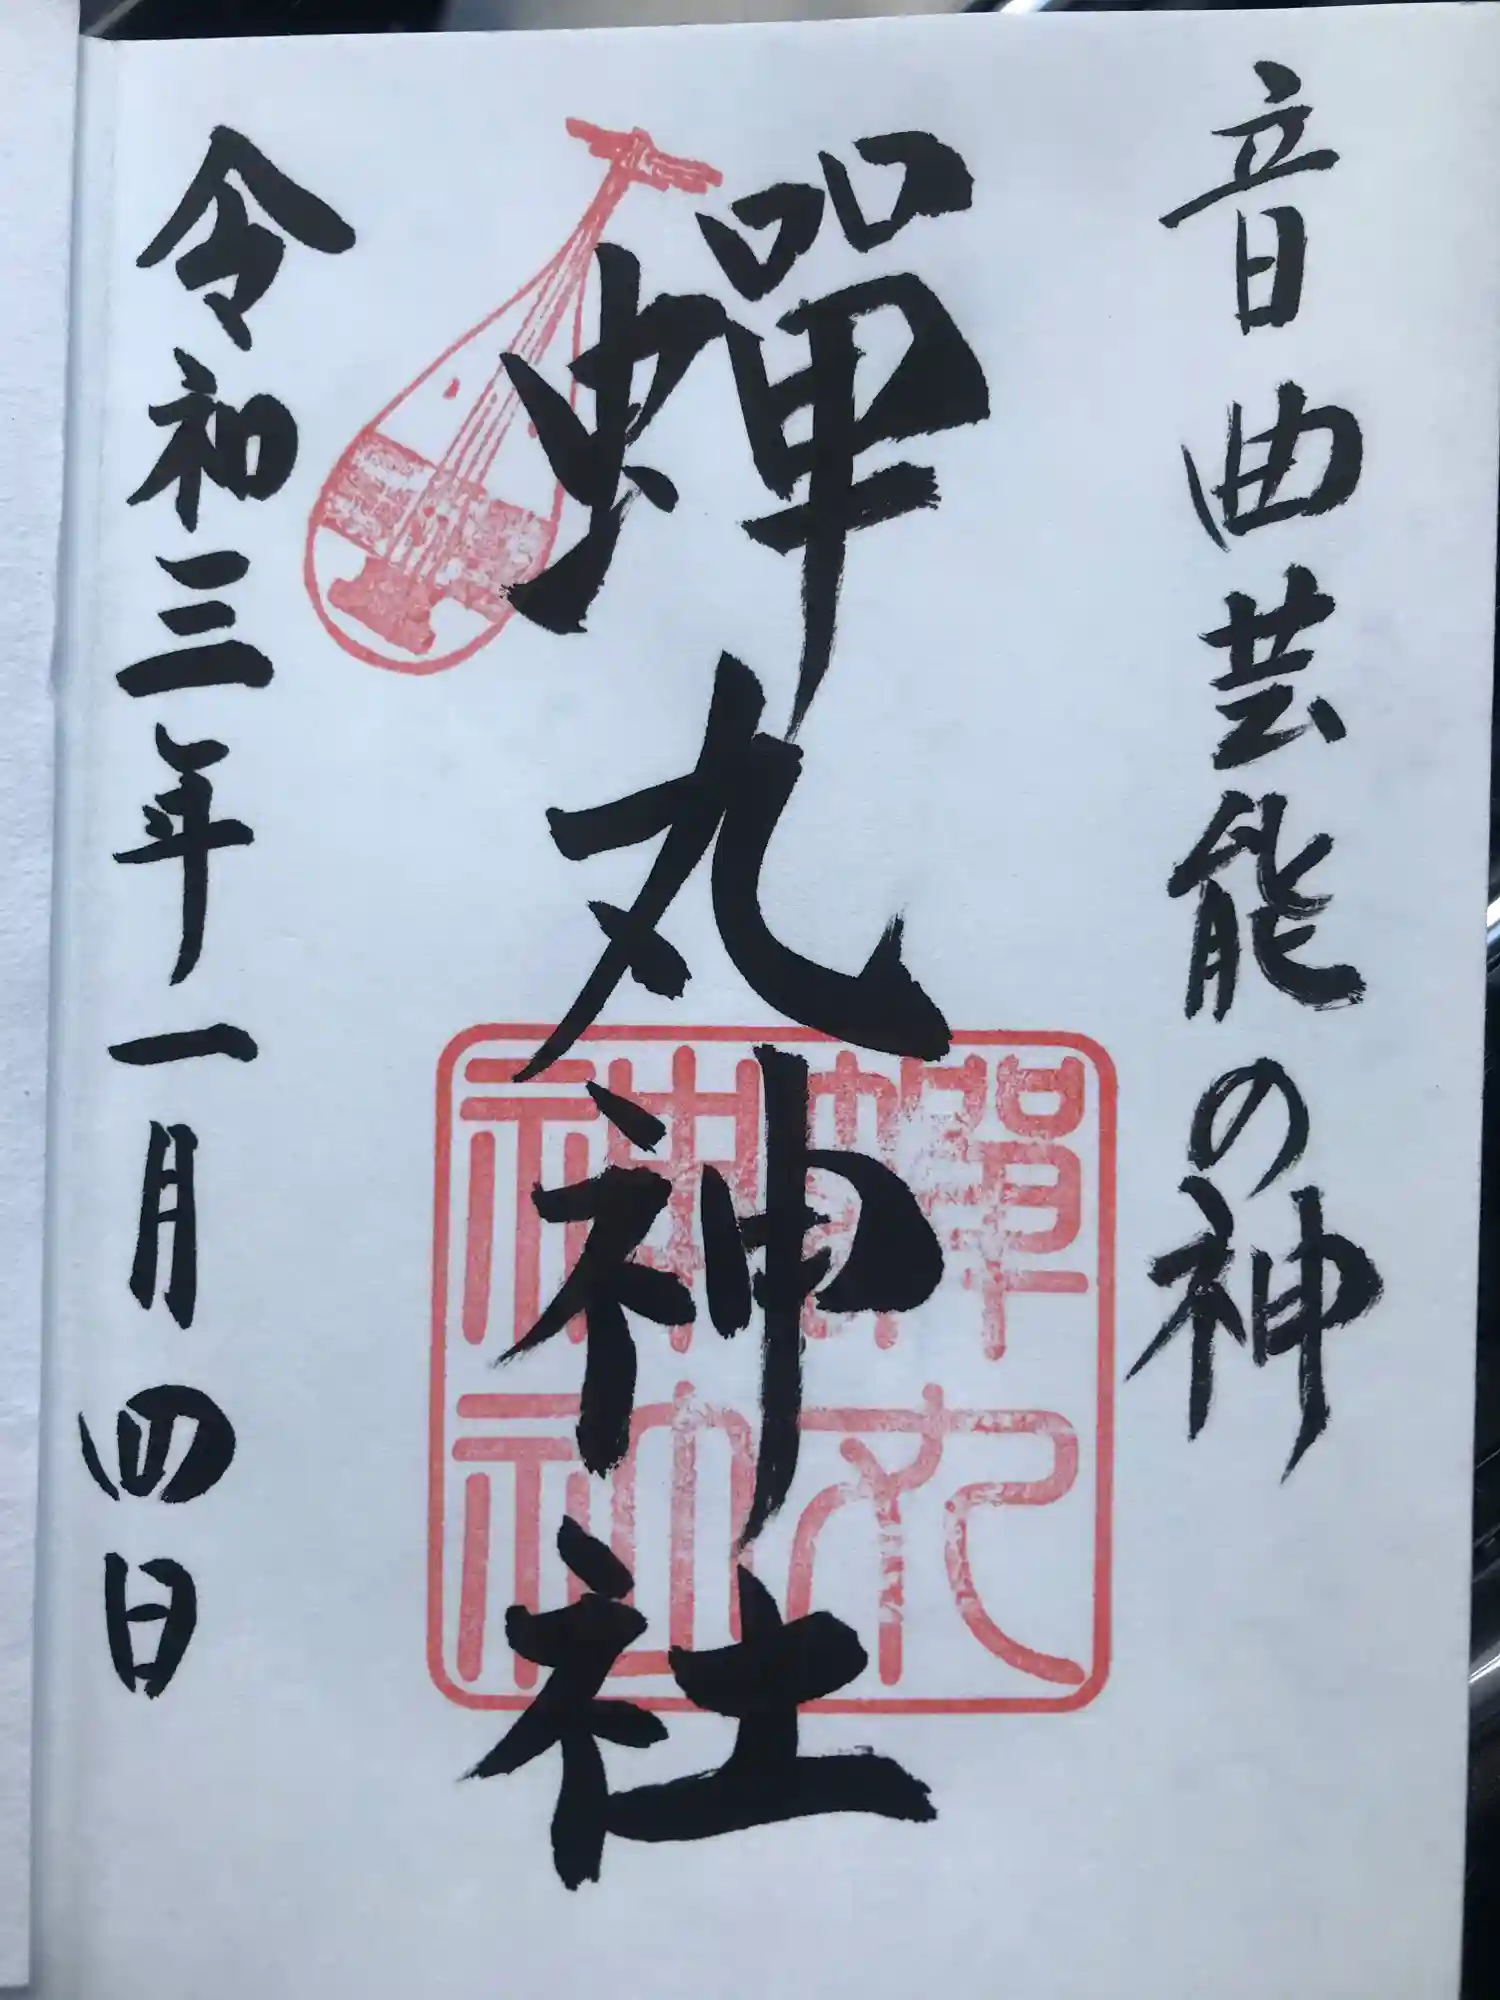 音曲芸能の神
蟬丸神社
蟬丸神社
令和三年一月四日